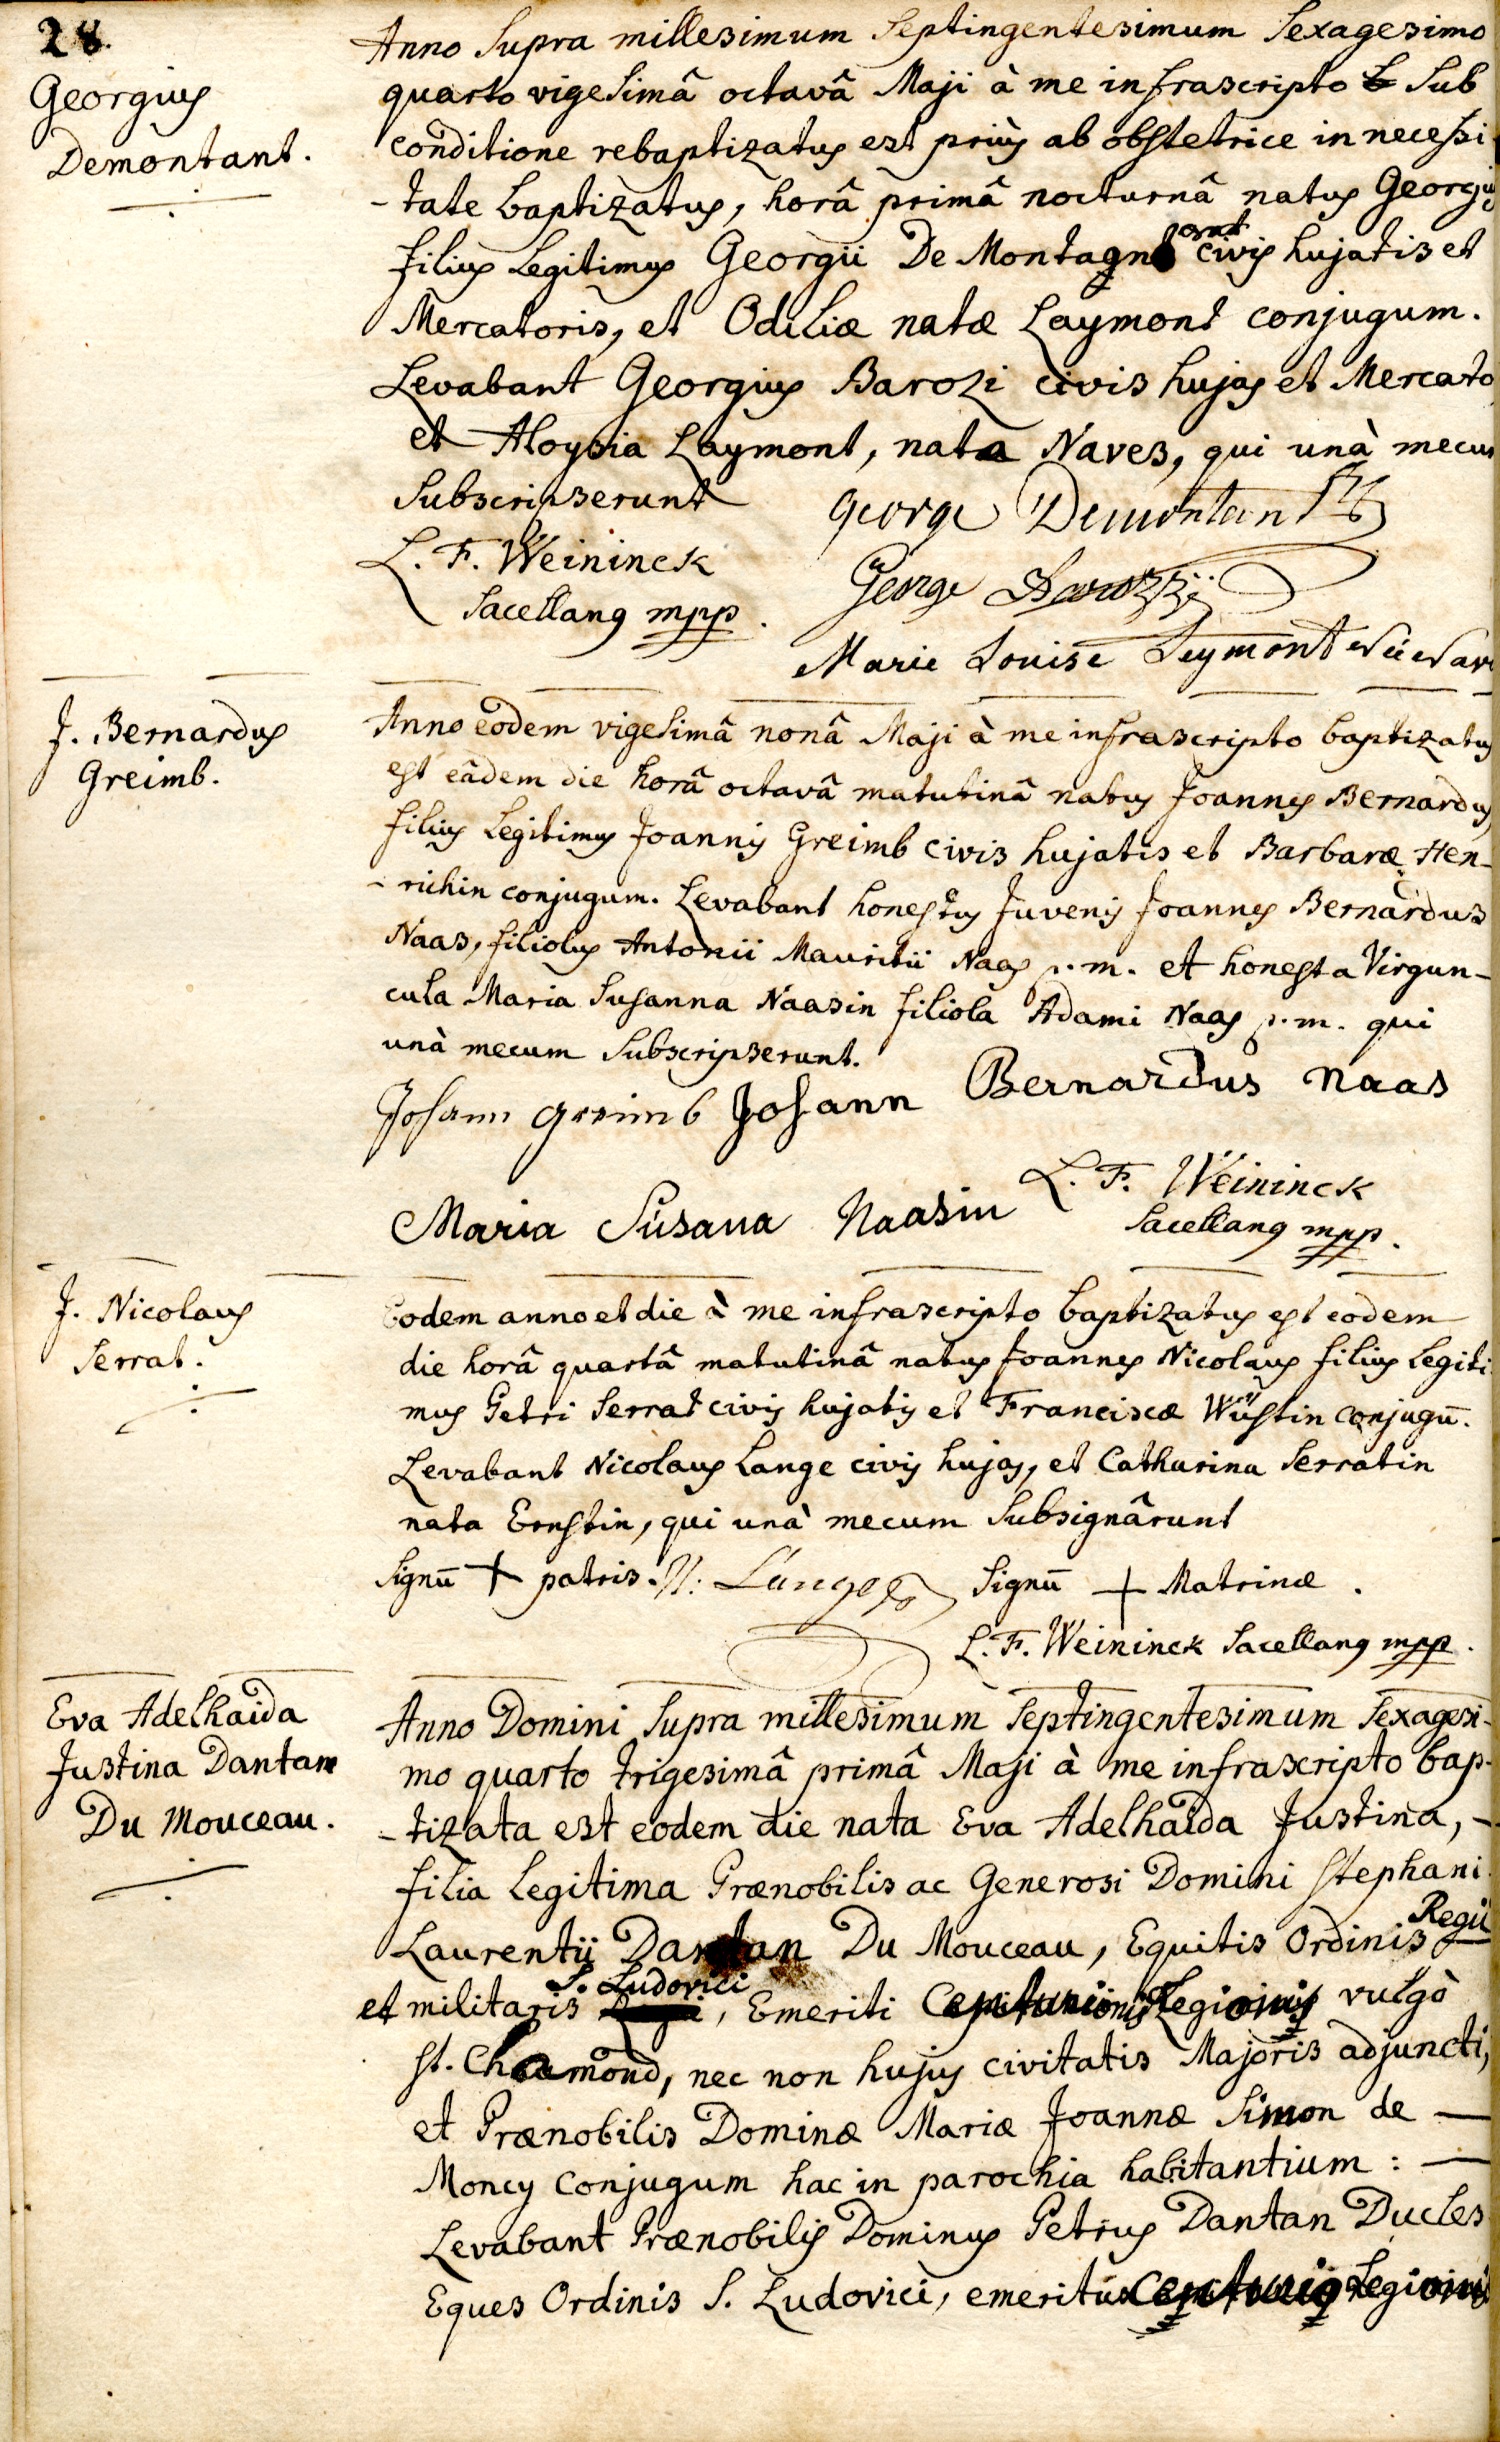 28.
Georgius
Demontant.
Anno Supra millesimum Septingentesimum Sexagesimo
quarto vigesimâ octavâ Maji à me infrascripto Sub
conditione rebaptizatus est priùs ab obstetrice in necessi
-tate baptizatus, horâ primâ nocturnâ natus Georgius
filius Legitimus Georgii De Montagn ont civis hujatis et
Mercatoris, et Odiliæ natæ Laymont conjugum.
Levabant Georgius Barozi civis hujas et Mercato
et Aloysia Laymont, nata Naves, qui unà mecum
Subscripserunt
George Demontant
L. F. Weininck
Sacellanus mpp.
George Barozzij
Marie Louise Leymont Née Nave
J. Bernardus
Greimb.
Anno eodem vigesimâ nonâ Maji à me infrascripto baptizatus
est eâdem die horâ octavâ matutinâ natus Joannes Bernardus
filius Legitimus Joannis Greimb civis hujatis et Barbaræ Hen-
-richin conjugum. Levabant honestus Juvenis Joannes Bernardus
Naas, filiolus Antonii Mauritii Naas p.m. et honesta Virgun-
cula Maria Susanna Naasin filiola Adami Naas p.m. qui
unà mecum Subscripserunt.
Johann Greimb Johann Bernardus Naas
Maria Susana Naasin
L. F. Weininck
Sacellanus mpp.
J. Nicolaus
Serrat.
Eodem anno et die à me infrascripto baptizatus est eodem
die horâ quartâ matutinâ natus Joannes Nicolaus filius Legiti
mus Petri Serrat civis hujatis et Franciscæ Wüstin conjugū.
Levabant Nicolaus Lange civis hujas, et Catharina Serratin
nata Ernstin, qui unà mecum Subsignârunt
Signū + patris. N: Lange Signū + Matrinæ.
L. F. Weininck Sacellanus mpp.
Eva Adelhaida
Justina Dantan
Du Mouceau.
Anno Domini Supra millesimum Septingentesimum Sexagesi-
mo quarto trigesimâ primâ Maji à me infrascripto bap-
-tizata est eodem die nata Eva Adelhaida Justina, -
filia Legitima Prænobilis ac Generosi Domini Stephani
Laurentii Dantan Du Mouceau, Equitis Ordinis Regii
et militaris S. Ludovici, Emeriti Centurionis Legionis vulgò
St. Chamond, nec non hujus civitatis Majoris adjuncti,
et Prænobilis Dominæ Mariæ Joannæ Simon de —
Moncy Conjugum hac in parochia habitantium: —
Levabant Prænobilis Dominus Petrus Dantan Ducles
Eques Ordinis S. Ludovici, emeritus Centurio Legionis